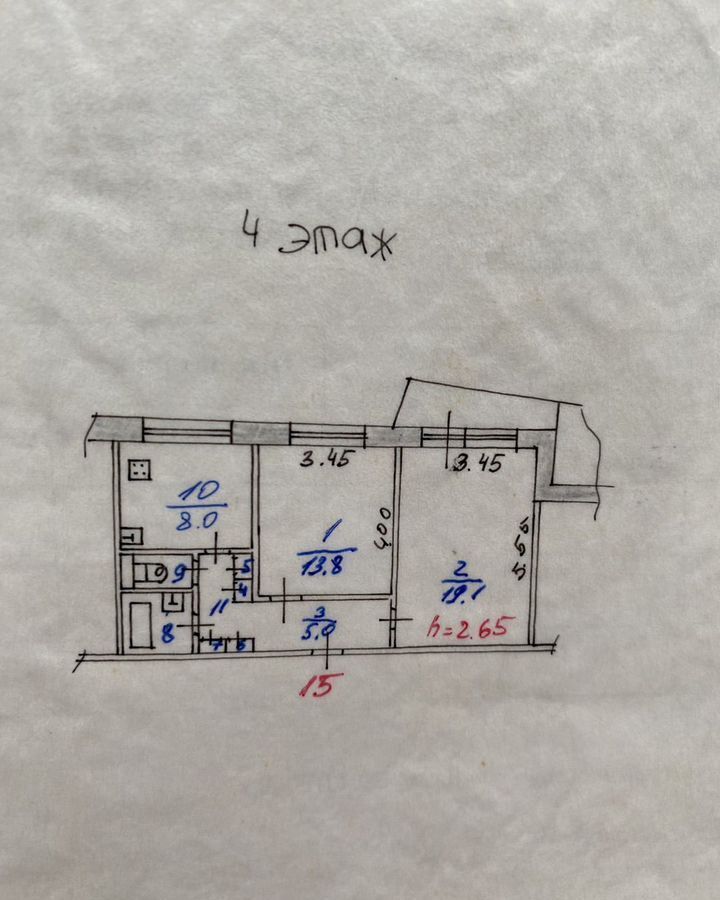 4 этаж
3.45
3.45
10
8.0
1
13.8
4.00
2
19.1
5.65
9
5
4
11
8
3
5.0
h=2.65
7
6
15